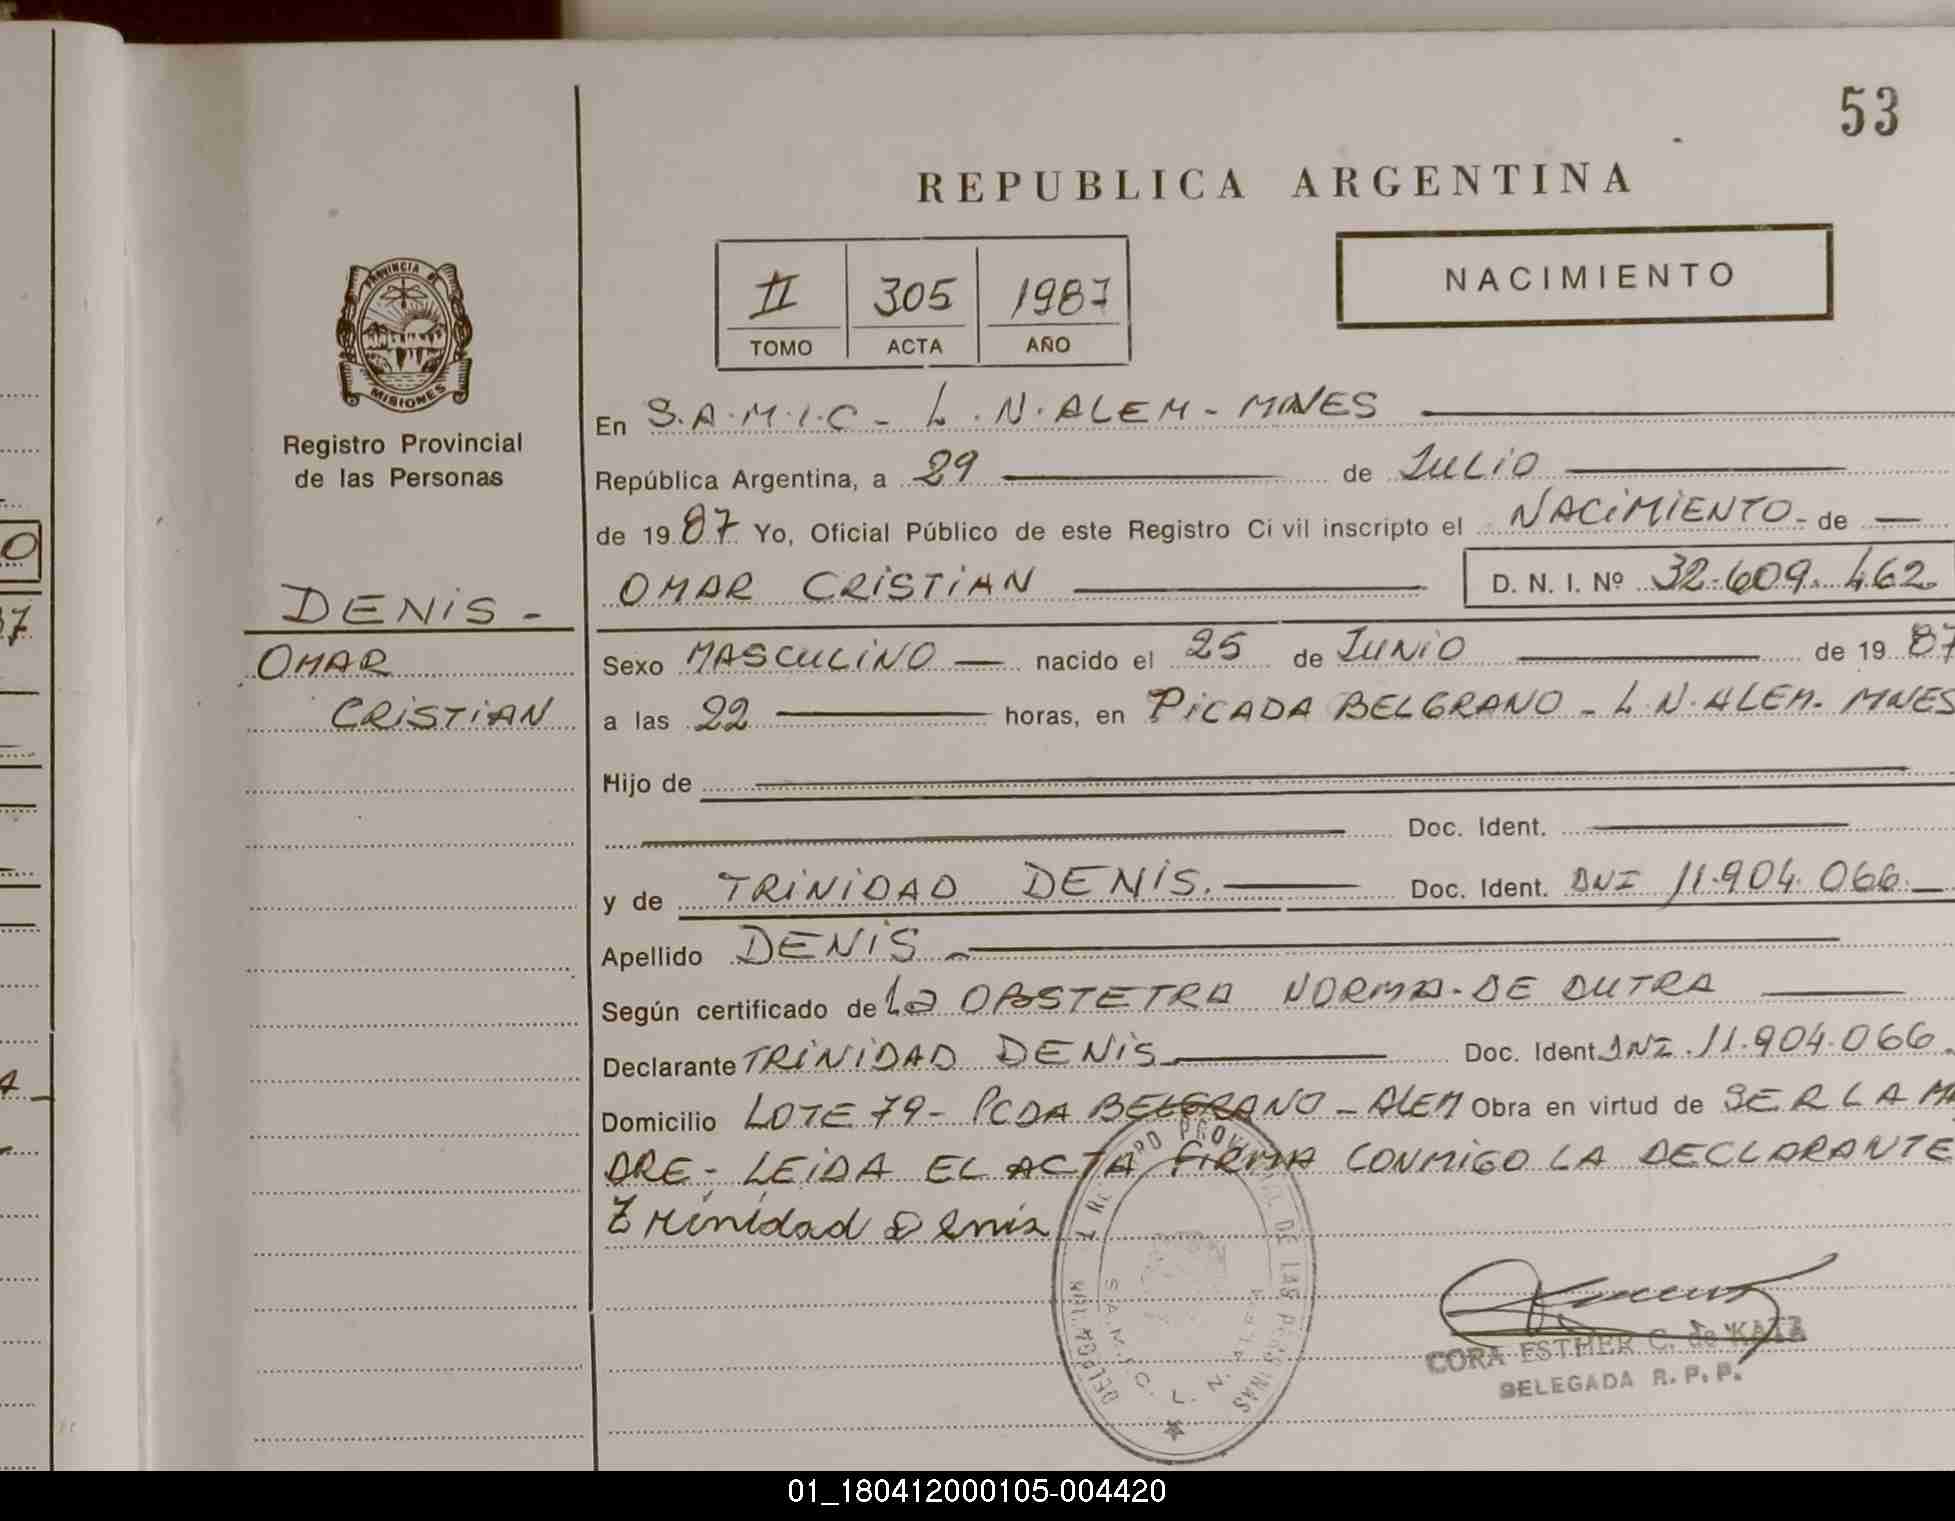 53
REPUBLICA ARGENTINA
II 305 1987
TOMO ACTA AÑO
NACIMIENTO
PROVINCIA DE
MISIONES
Registro Provincial
de las Personas
DENIS -
OMAR
CRISTIAN
En S.A.M.I.C - L.N. ALEM - MNES
República Argentina, a 29 de JULIO
de 19 87 Yo, Oficial Público de este Registro Civil inscripto el NACIMIENTO - de
OMAR CRISTIAN D. N. I. Nº 32.609.462
Sexo MASCULINO nacido el 25 de JUNIO de 19 87
a las 22 horas, en PICADA BELGRANO - L.N. ALEM. MNES
Hijo de
Doc. Ident.
y de TRINIDAD DENIS. Doc. Ident. DNI 11.904.066
Apellido DENIS
Según certificado de La OBSTETRA NORMA DE DUTRA
Declarante TRINIDAD DENIS Doc. Ident DNI. 11.904.066.
Domicilio LOTE 79 - PCDA BELGRANO - ALEM Obra en virtud de SER LA MA
DRE - LEIDA EL ACTA FIRMA CONMIGO LA DECLARANTE
Trinidad Denis
DE LAS PERSONAS
S.A.M.I.C. L.N. ALEM
CORA ESTHER C. de KATZ
DELEGADA R. P. P.
0
87
01_180412000105-004420